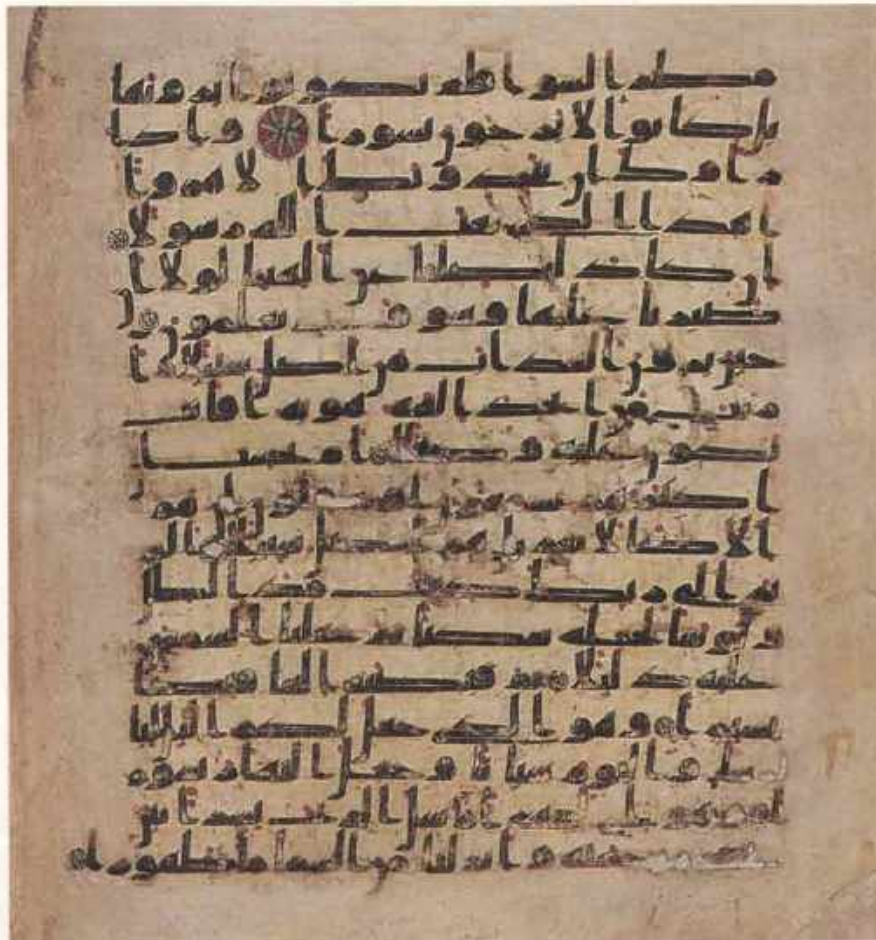 مطر السو افلم يكونوا يرونها
بل كانوا لا يرجون نشورا واذا
راوك ان يتخذونك الا هزوا
اهذا الذي بعث الله رسولا
ان كاد ليضلنا عن الهتنا لولا ا
ن صبرنا عليها وسوف يعلمون
حين يرون العذاب من اضل سبيلا ا
رايت من اتخذ الهه هويه افانت
تكون عليه وكيلا ام تحسب ا
ن اكثرهم يسمعون او يعقلون ان هم
الا كالانعم بل هم اضل سبيلا الم
تر الى ربك كيف مد الظل
ولو شا لجعله ساكنا ثم جعلنا الشمس
عليه دليلا ثم قبضنه الينا قبضا
يسيرا وهو الذي جعل لكم اليل لبا
سا والنوم سباتا وجعل النهار نشورا
وهو الذي ارسل الريح بشرا بين
يدي رحمته وانزلنا من السما ما طهورا